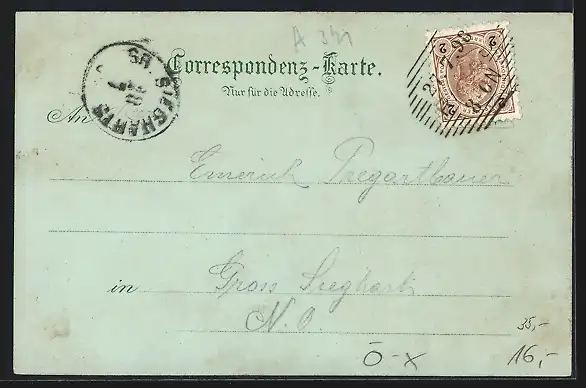 A 341
Correspondenz-Karte.
Nur für die Adresse.
GR. SIEGHARTS
2 2
2 2
7 98
8-9N
An
Emerich Pregartbauer
in Gross Sieghart
N.O.
35,-
Ö-X 16,-